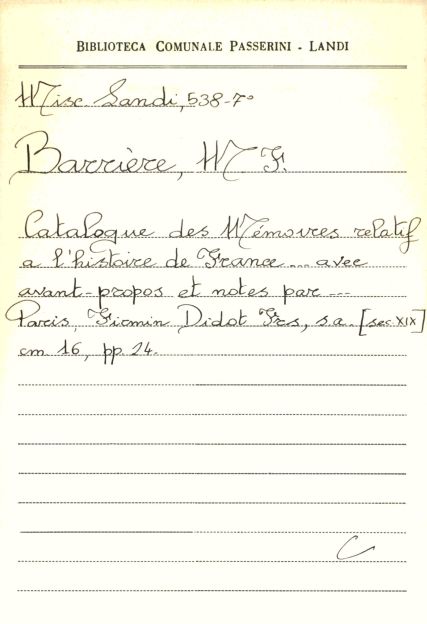 BIBLIOTECA COMUNALE PASSERINI - LANDI
Misc. Landi, 538-7°
Barrière, M F.
Catalogue des Mémoires relatif
a l'histoire de France ... avec
avant-propos et notes par ---
Paris, Firmin Didot Frs, s.a. [sec. XIX]
cm 16, pp. 24.
C